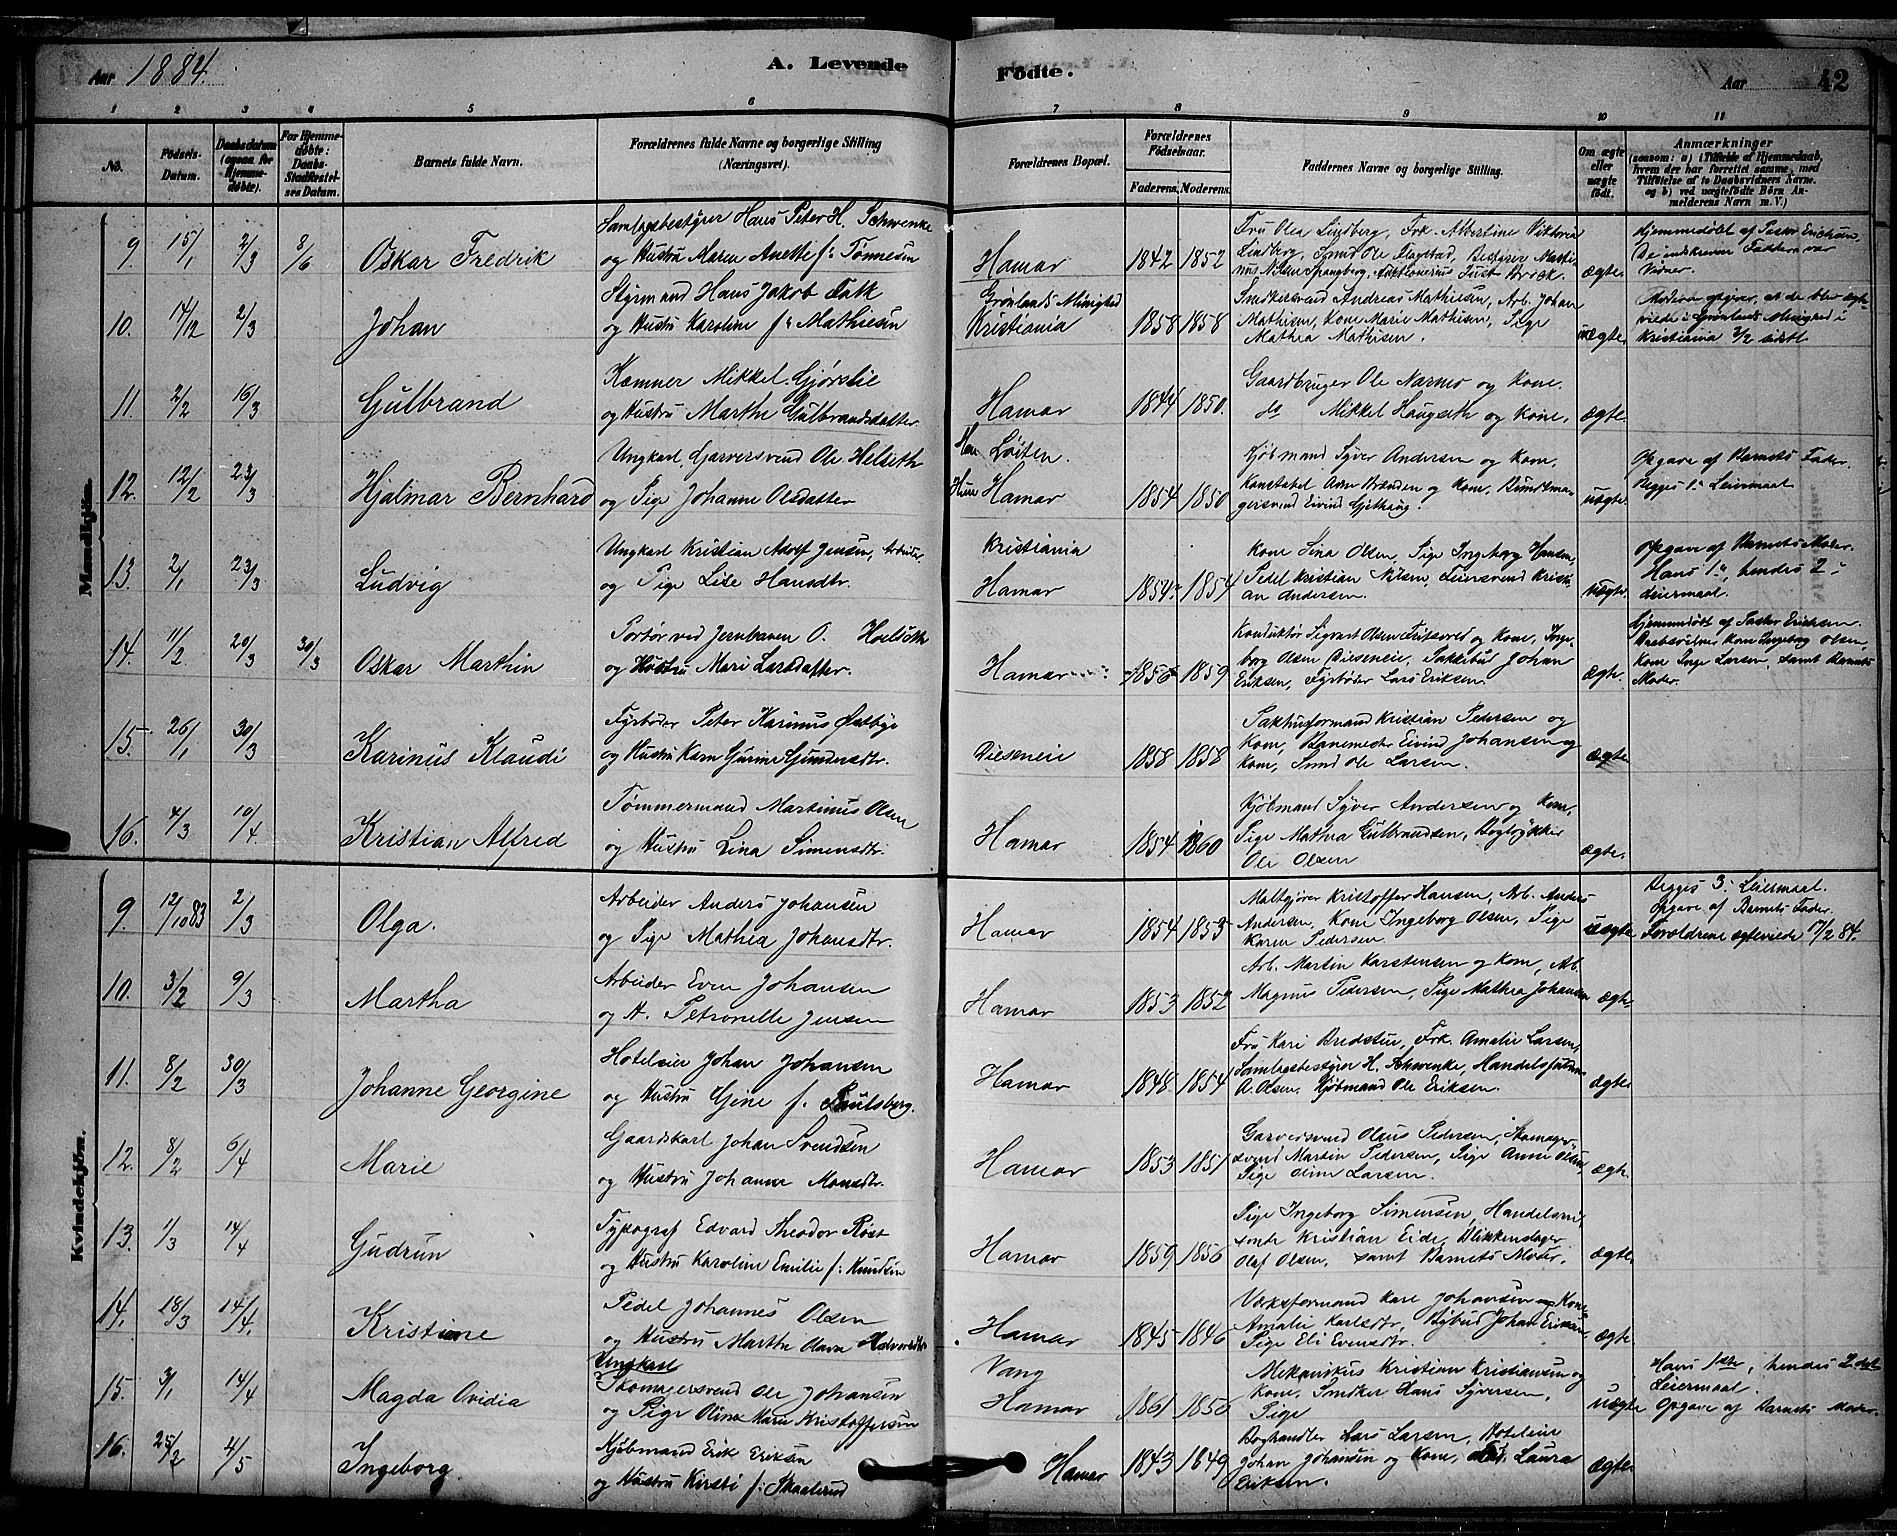 Aar 1884.
A. Levende
Födte.
Aar
42
1 2 3 4 5 6 7 8 9 10 11
No.
Födsels-
Datum.
Daabsdatum
(ogsaa for
Hjemme-
døbte).
For Hjemme-
døbte:
Daabs-
Stadfæstel-
ses Datum.
Barnets fulde Navn.
Forældrenes fulde Navne og borgerlige Stilling
(Næringsvei).
Forældrenes Bopæl.
Forældrenes
Födselsaar.
Faderens. Moderens.
Faddernes Navne og borgerlige Stilling.
Om ægte
eller
uægte
født.
Anmærkninger
(saasom: a) i Tilfælde af Hjemmedaab,
hvem der har forrettet samme, med
Tilføielse af to Daabsvidners Navne,
og b) ved uægtefødte Börn An-
melderens Navn m. V.)
Mandkjön.
9. 15/1 2/3 8/6 Oskar Fredrik
Samlagsbestyrer Hans Peter H. Schwenke
og Hustru Maren Anette f: Tönnesen
Hamar 1842 1852
Fru Olea Lindberg, Frk. Albertine Viktoria
Lindberg, Smed Ole Flagstad, Bestyrer Marti-
nus Nilsen Spangberg, Auktionarius Just Broch.
ægte.
Hjemmedöbt af Pastor Erichsen.
De indskrevne Faddere var
Vidner.
10. 14/12 2/3 Johan
Styrmand Hans Jakob Falk
og Hustru Karoline f: Mathisen
Grönlands Menighed
Kristiania 1858 1858
Snedkersvend Andreas Mathisen, Arb. Johan
Mathisen, Kone Marie Mathisen, Pige
Mathea Mathisen.
uægte.
Moderen opgiver, at de blev ægte-
viede i Grönlands Menighed i
Kristiania 3/2 sidstl.
11. 2/2 16/3 Gulbrand
Kæmner Mikkel Gjörslie
og Hustru Marthe Gulbrandsdatter
Hamar 1844 1850.
Gaardbruger Ole Narmo og Kone.
do Mikkel Haugseth og Kone.
ægte.
12. 12/2 23/3 Hjalmar Bernhard
Ungkarl, Garversvend Ole Helseth
og Pige Johanne Olsdatter
Han Löiten.
Hun Hamar 1854 1850
Kjöbmand Syver Andersen og Kone.
Konstabel Arne Brænden og Kone, Bundtma-
gersvend Eivind Gjethaug.
uægte.
Opgave af Barnets Fader.
Begges 1: Leiermaal
13. 2/1 23/3 Ludvig
Ungkarl Kristian Adolf Jensen, Arbeider
og Pige Lise Hansdtr.
Kristiania
Hamar 1854 1854
Kone Lina Olsen, Pige Ingeborg Hansen,
Pedel Kristian Nilsen, Feiersvend Kristi-
an Andersen.
uægte.
Opgave af Barnets Moder.
Hans 1:, hendes 2:
Leiermaal.
14. 11/2 20/3 30/3 Oskar Marthin
Portör ved Jernbanen O. Holseth
og Hustru Mari Larsdatter.
Hamar 1856 1859
Konduktör Sigvart Olsen Fritsvold og Kone, Inge-
borg Olsen Dieseneie, Pakkebud Johan
Eriksen, Fyrböder Lars Eriksen.
ægte.
Hjemmedöbt af Pastor Erichsen.
Daabsvidner Kone Ingeborg Olsen,
Kone Inge Larsen, samt Barnets
Moder.
15. 26/1 30/3 Karinus Klaudi
Fyrböder Peter Karinus Östbye
og Hustru Karen Gurine Gundersdtr.
Dieseneie 1858 1858
Pakhusformand Kristian Pedersen og
Kone, Banemester Eivind Johansen og
Kone, Smed Ole Larsen.
ægte.
16. 4/3 10/4. Kristian Alfred
Tömmermand Martinus Olsen
og Hustru Lina Simensdtr.
Hamar 1854 1860
Kjöbmand Syver Andersen og Kone,
Pige Mathea Gulbrandsen, Bogtrykker
Ole Olsen
ægte.
Kvindekjön.
9. 12/10 83 2/3 Olga.
Arbeider Anders Johansen
og Pige Mathea Johansdtr.
Hamar 1854 1853
Maltgjörer Kristoffer Hansen, Arb. Anders
Andersen, Kone Ingeborg Olsen, Pige
Karen Pedersen
uægte
Begges 3: Leiermaal.
Opgave af Barnets Fader.
Forældrene ægteviede /2 84.
10. 3/2 9/3 Martha
Arbeider Even Johansen
og H. Petronelle Jensen
Hamar 1853 1852
Arb. Martin Karstensen og Kone, Arb.
Magnus Pedersen, Pige Mathea Johansen
ægte.
11. 8/2 30/3 Johanne Georgine
Hoteleier Johan Johansen
og Hustru Gine f. Paulsberg.
Hamar 1848 1854
Fru Kari Bredstue, Frk. Amalie Larsen,
Samlagsbestyrer H. Schwenke, Handelsfuldm.
A. Olsen, Kjöbmand Ole Eriksen.
ægte.
12. 8/2 6/4 Marie
Gaardskarl Johan Svendsen
og Hustru Johanne Monsdtr.
Hamar 1853 1851
Garversvend Olaus Pedersen, Skomager-
svend Martin Pedersen, Pige Anne Olsen
Pige Oline Larsen.
ægte.
13. 1/3 14/4 Gudrun
Typograf Edvard Theodor Röst
og Hustru Karoline Emilie f: Knudsen
Hamar 1859 1856
Pige Ingeborg Simensen, Handelsrei-
sende Kristian Eide, Blikkenslager
Olaf Olsen, samt Barnets Moder.
ægte.
14. 18/3 14/4. Kristine
Pedel Johannes Olsen
og Hustru Marthe Olava Halvorsdtr
Hamar 1845 1846
Væksformand Karl Johansen og Kone
Amalie Karlsdtr. Bybud Johan Eriksen,
Pige Eli Evensdtr.
ægte.
15. 3/1 14/4 Magda Ovidia
Ungkarl
Skomagersvend Ole Johansen
og Pige Oline Marie Kristoffersen
Vang
Hamar 1861 1850
Mekanikus Kristian Kristiansen og
Kone, Snedker Hans Syversen,
Pige
uægte
Hans 1ste, hendes 2det
Leiermaal.
Opgave af Barnets Moder.
16. 25/2 4/5 Ingeborg.
Kjöbmand Erik Eriksen
og Hustru Kirsti f: Skaalerud
Hamar 1843 1849
Boghandler Lars Larsen, Hoteleier
Johan Johansen og Kone, Laura
Eriksen.
ægte.